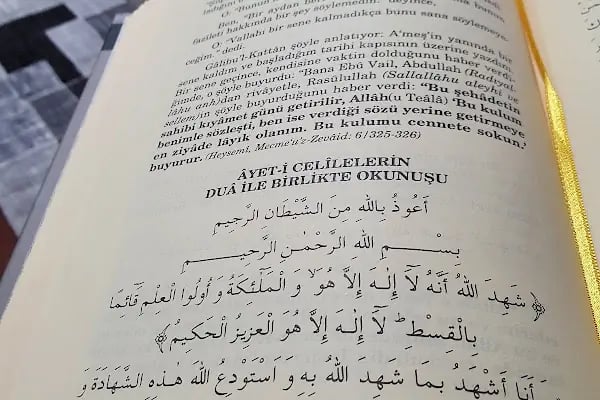 O: "Bunun
Ben, "Bir aydan beri
fazileti hakkında bir şey söylemedin" deyince,
O: "Vallahi bir sene kalmadıkça bunu sana söylemeye-
ceğim" dedi.
Gâlibu'l-Kattân şöyle anlatıyor: A'meş'in yanında bir
sene kaldım ve başladığım tarihi kapısının üzerine yazdım.
Bir sene geçince, kendisine vaktin dolduğunu haber verdi-
ğimde, o şöyle buyurdu: "Bana Ebû Vail, Abdullah (Radıyal-
lâhu anh)dan rivâyetle, Rasûlullah (Sallallâhu aleyhi ve
sellem)in şöyle buyurduğunu haber verdi: "Bu şehâdetin
sahibi kıyâmet günü getirilir, Allâh(u Teâlâ) 'Bu kulum
benimle sözleşti, ben ise verdiği sözü yerine getirmeye
en ziyâde lâyık olanım. Bu kulumu cennete sokun.'
buyurur. (Heysemî, Mecme'u'z-Zevâid: 6/325-326)
ÂYET-İ CELÎLELERİN
DUÂ İLE BİRLİKTE OKUNUŞU
أَعُوذُ بِاللهِ مِنَ الشَّيْطَانِ الرَّجِيمِ
بِسْــمِ اللهِ الرَّحْمٰنِ الرَّحِيــمِ
﴿شَهِدَ اللهُ أَنَّهُ لَآ إِلٰـهَ إِلَّا هُوَۙ وَ الْمَلٰٓئِكَةُ وَ أُولُوا الْعِلْمِ قَٓائِمًا
بِالْقِسْطِۜ لَآ إِلٰـهَ إِلَّا هُوَ الْعَزِيزُ الْحَكِيمُ﴾
وَ أَنَا أَشْهَدُ بِمَا شَهِدَ اللهُ بِهِ وَ اَسْتَوْدِعُ اللهَ هٰذِهِ الشَّهَادَةَ وَ